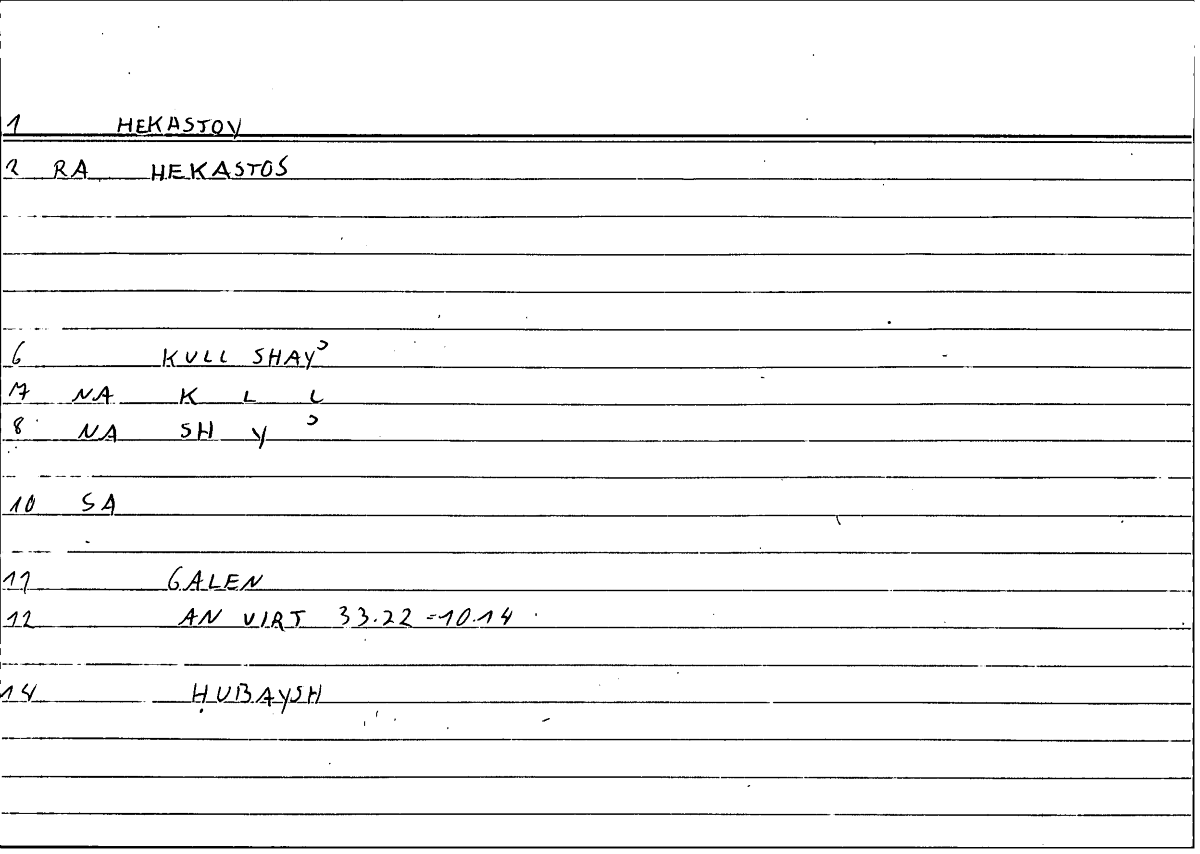 1 HEKASTOY
2 RA HEKASTOS
6 KULL SHAYʾ
7 NA K L L
8 NA SH Y ʾ
10 SA
11 GALEN
12 AN VIRT 33.22 = 10.14
14 ḤUBAYSH